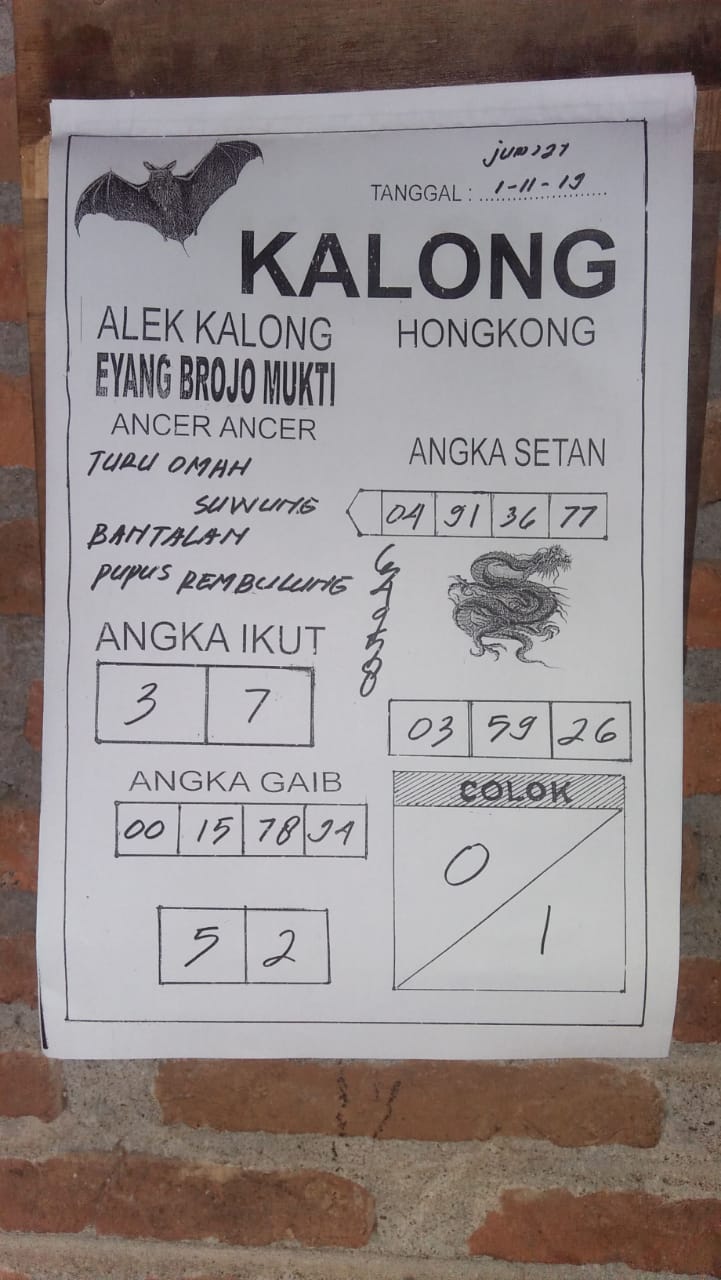 TANGGAL : 1-11-19
KALONG
ALEK KALONG
HONGKONG
EYANG BROJO MUKTI
ANCER ANCER
TURU OMAH
SUWUNG
BANTALAN
PUPUS REMBULUNG
ANGKA SETAN
04 91 36 77
ANGKA IKUT
3 7
03 59 26
ANGKA GAIB
00 15 78 94
COLOK
0
1
5 2